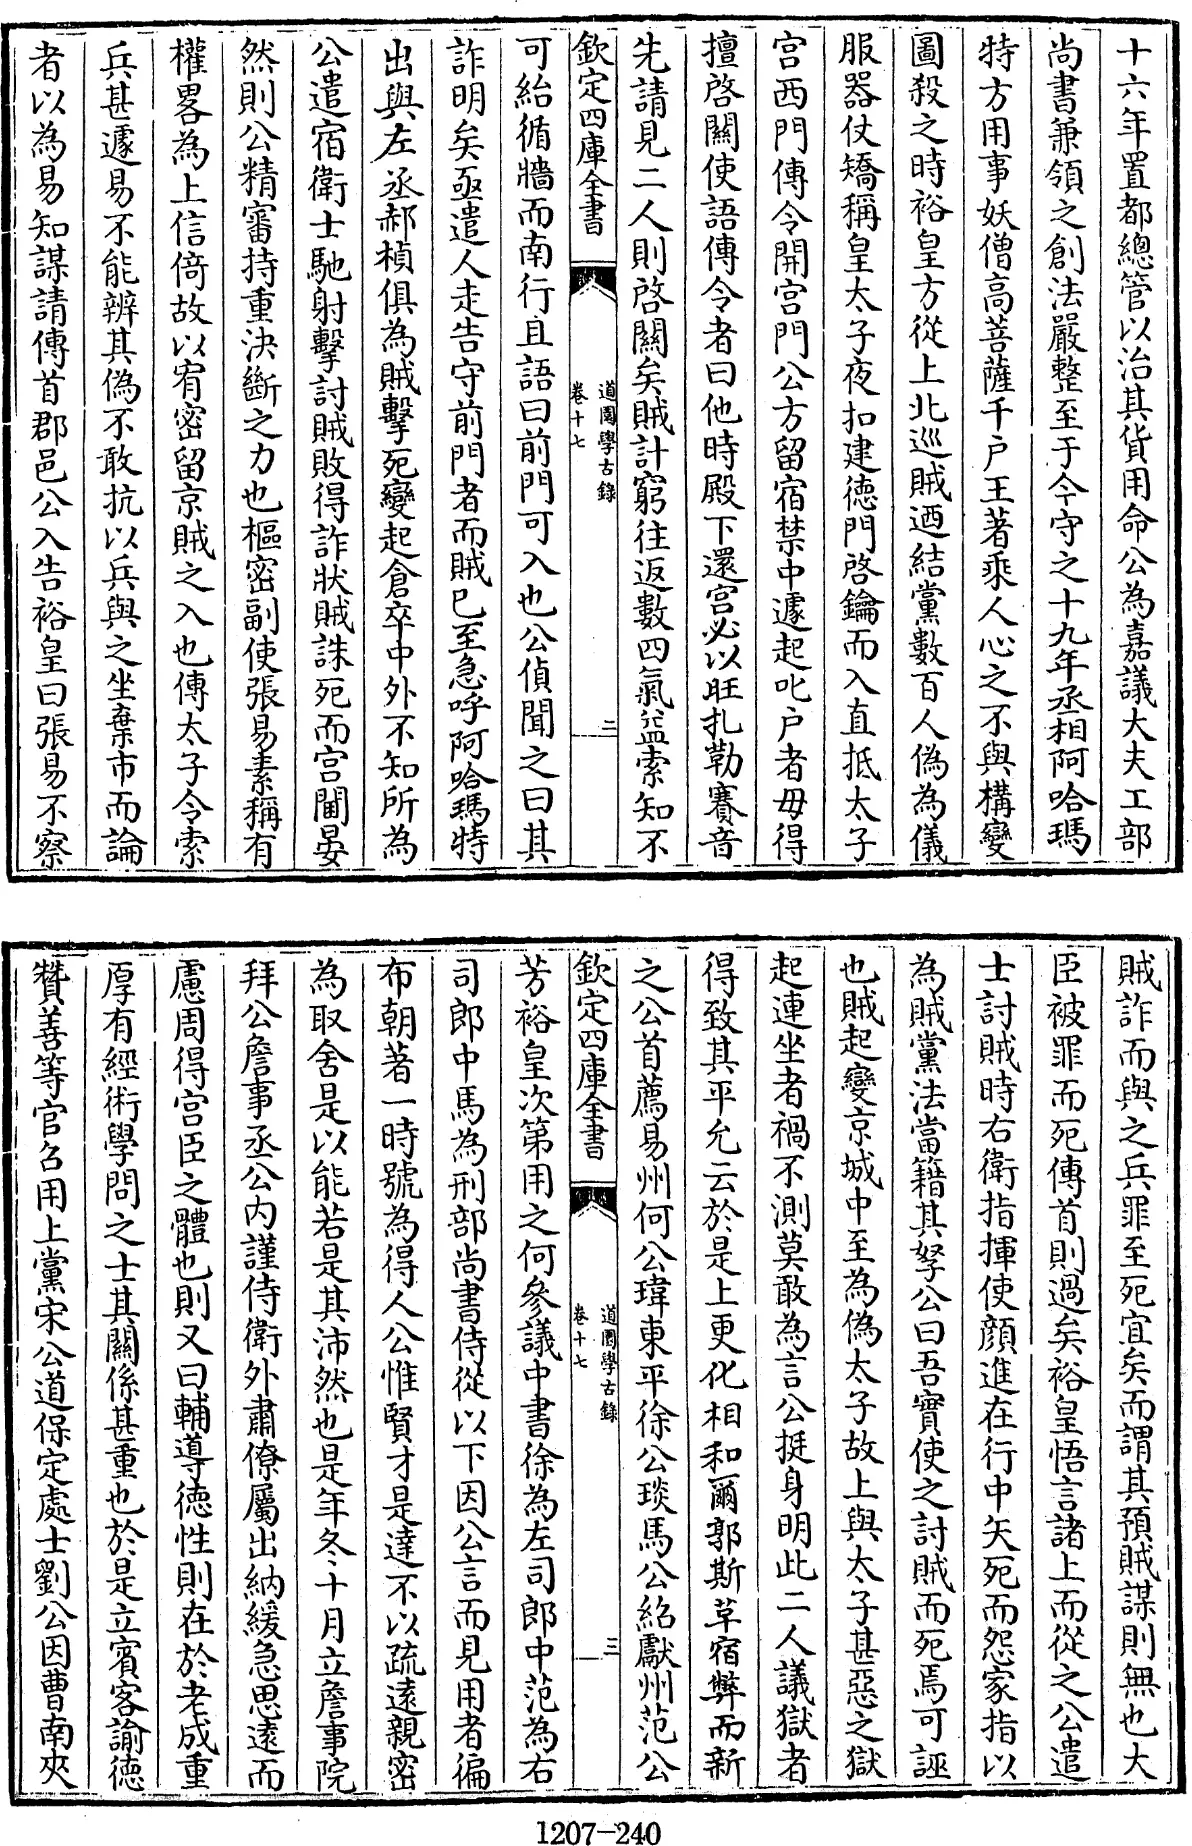 十六年置都總管以治其貨用命公為嘉議大夫工部
尚書兼領之創法嚴整至于今守之十九年丞相阿哈瑪
特方用事妖僧高菩薩千户王著乘人心之不與構變
圖殺之時裕皇方從上北巡賊迺結黨數百人偽為儀
服器仗矯稱皇太子夜扣建徳門啓鑰而入直抵太子
宫西門傳令開宫門公方留宿禁中遽起叱户者毋得
擅啓關使語傳令者曰他時殿下還宫必以旺扎勒賽音
先請見二人則啓關矣賊計窮往返數四氣益索知不
欽定四庫全書
道園學古錄
卷十七
二
可紿循牆而南行且語曰前門可入也公偵聞之曰其
詐明矣亟遣人走告守前門者而賊已至急呼阿哈瑪特
出與左丞郝楨俱為賊擊死變起倉卒中外不知所為
公遣宿衛士馳射擊討賊敗得詐狀賊誅死而宫闈晏
然則公精審持重決斷之力也樞密副使張易素稱有
權畧為上信倚故以宥密留京賊之入也傳太子令索
兵甚遽易不能辨其偽不敢抗以兵與之坐棄市而論
者以為易知謀請傳首郡邑公入告裕皇曰張易不察
賊詐而與之兵罪至死宜矣而謂其預賊謀則無也大
臣被罪而死傳首則過矣裕皇悟言諸上而從之公遣
士討賊時右衛指揮使顔進在行中矢死而怨家指以
為賊黨法當籍其孥公曰吾實使之討賊而死焉可誣
也賊起變京城中至為偽太子故上與太子甚惡之獄
起連坐者禍不測莫敢為言公挺身明此二人議獄者
得致其平允云於是上更化相和爾郭斯草宿弊而新
之公首薦易州何公瑋東平徐公琰馬公紹獻州范公
欽定四庫全書
道園學古錄
卷十七
三
芳裕皇次第用之何參議中書徐為左司郎中范為右
司郎中馬為刑部尚書侍從以下因公言而見用者徧
布朝著一時號為得人公惟賢才是達不以疏遠親密
為取舍是以能若是其沛然也是年冬十月立詹事院
拜公詹事丞公内謹侍衛外肅僚屬出納緩急思遠而
慮周得宫臣之體也則又曰輔導徳性則在於老成重
厚有經術學問之士其關係甚重也於是立賓客諭徳
贊善等官召用上黨宋公道保定處士劉公因曹南夾
1207-240